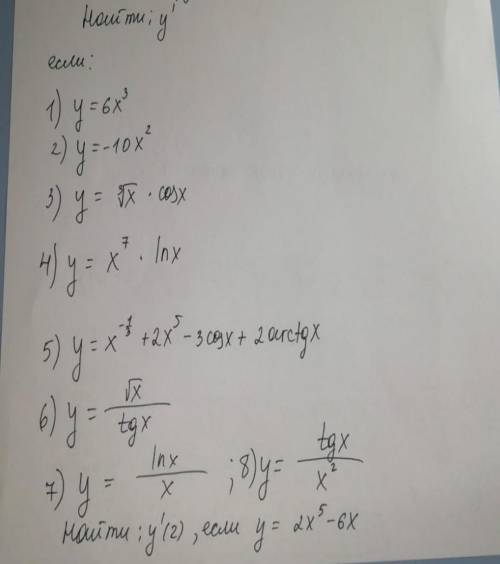 Найти: y'
если:
1) y = 6x³
2) y = -10x²
3) y = ∛x · cosx
4) y = x⁷ · lnx
5) y = x^(-1/3) + 2x⁵ - 3cosx + 2arctgx
6) y = √x / tgx
7) y = lnx / x ; 8) y = tgx / x²
Найти: y'(2), если y = 2x⁵ - 6x